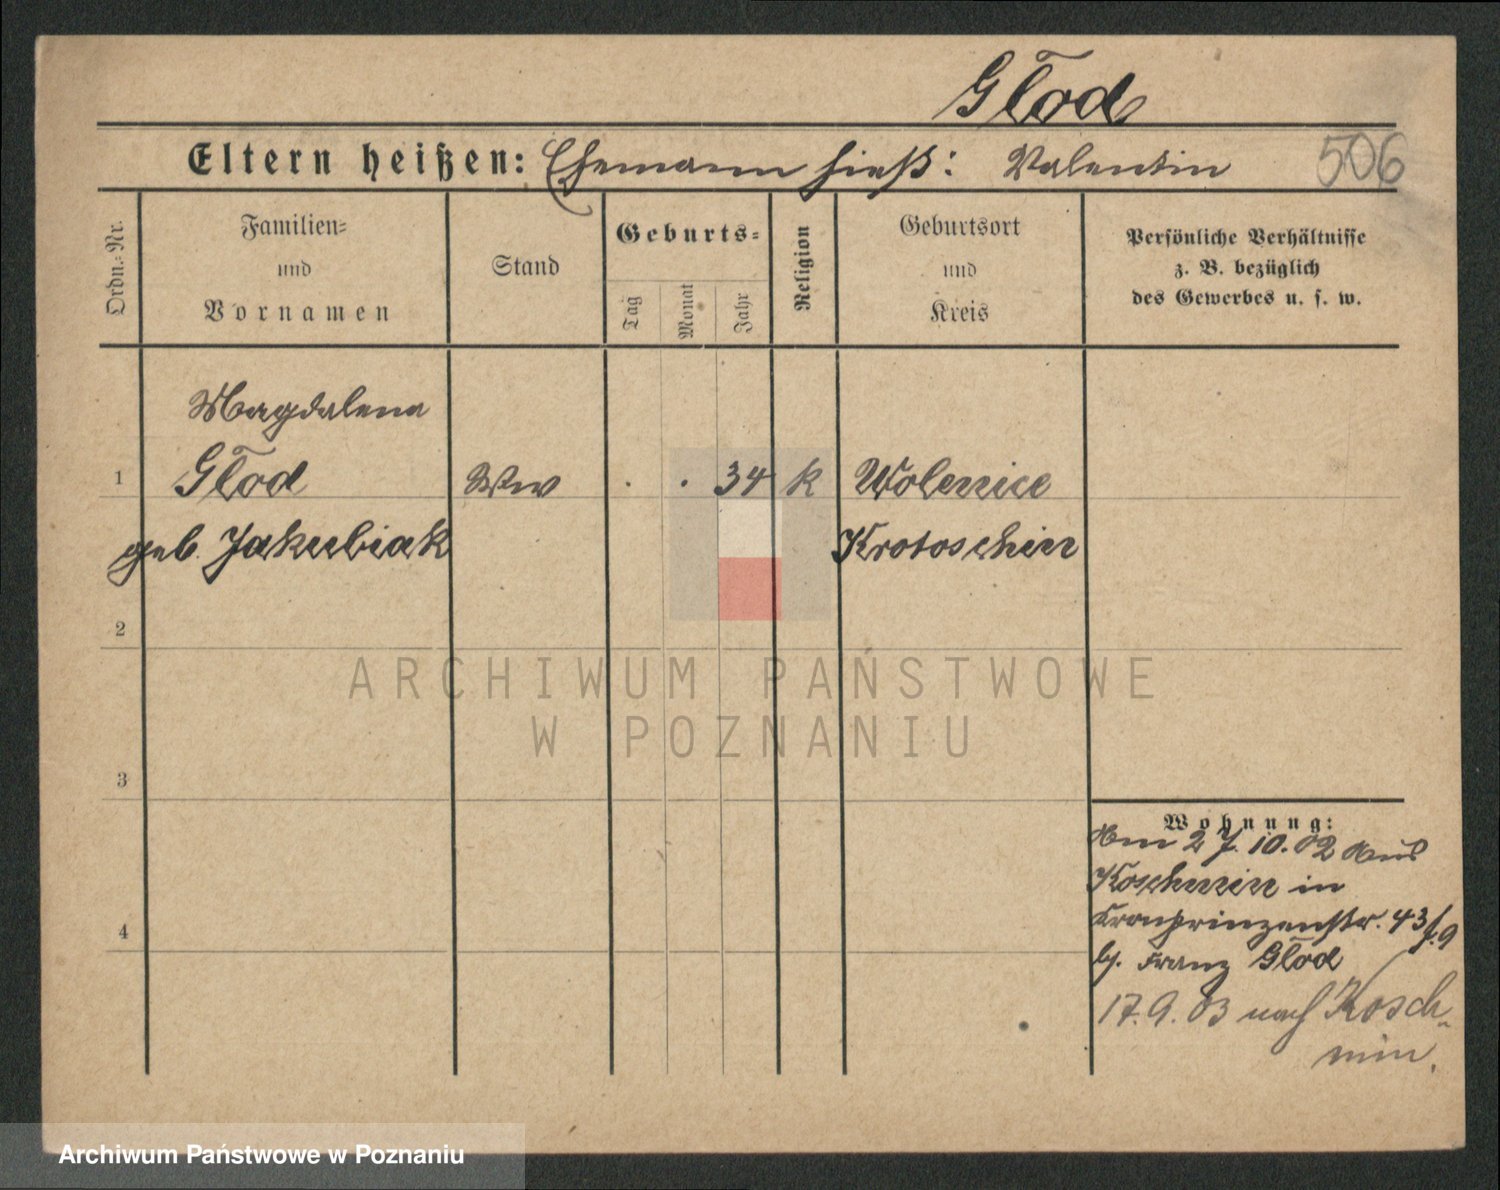 Głod
Eltern heißen: Ehemann hieß: Valentin
506
Ordn.-Nr.
Familien-
und
Vornamen
Stand
Geburts-
Tag
Monat
Jahr
Religion
Geburtsort
und
Kreis
Persönliche Verhältnisse
z. B. bezüglich
des Gewerbes u. s. w.
Magdalena
1 Głod Ww . . 34 k Wolenice
geb. Jakubiak Krotoschin
2
3
4
ARCHIWUM PAŃSTWOWE
W POZNANIU
Wohnung:
Am 27.10.02 aus
Koschmin in
Kronprinzenstr. 43
b. Franz Głod
17.9.03 nach Kosch-
min.
Archiwum Państwowe w Poznaniu